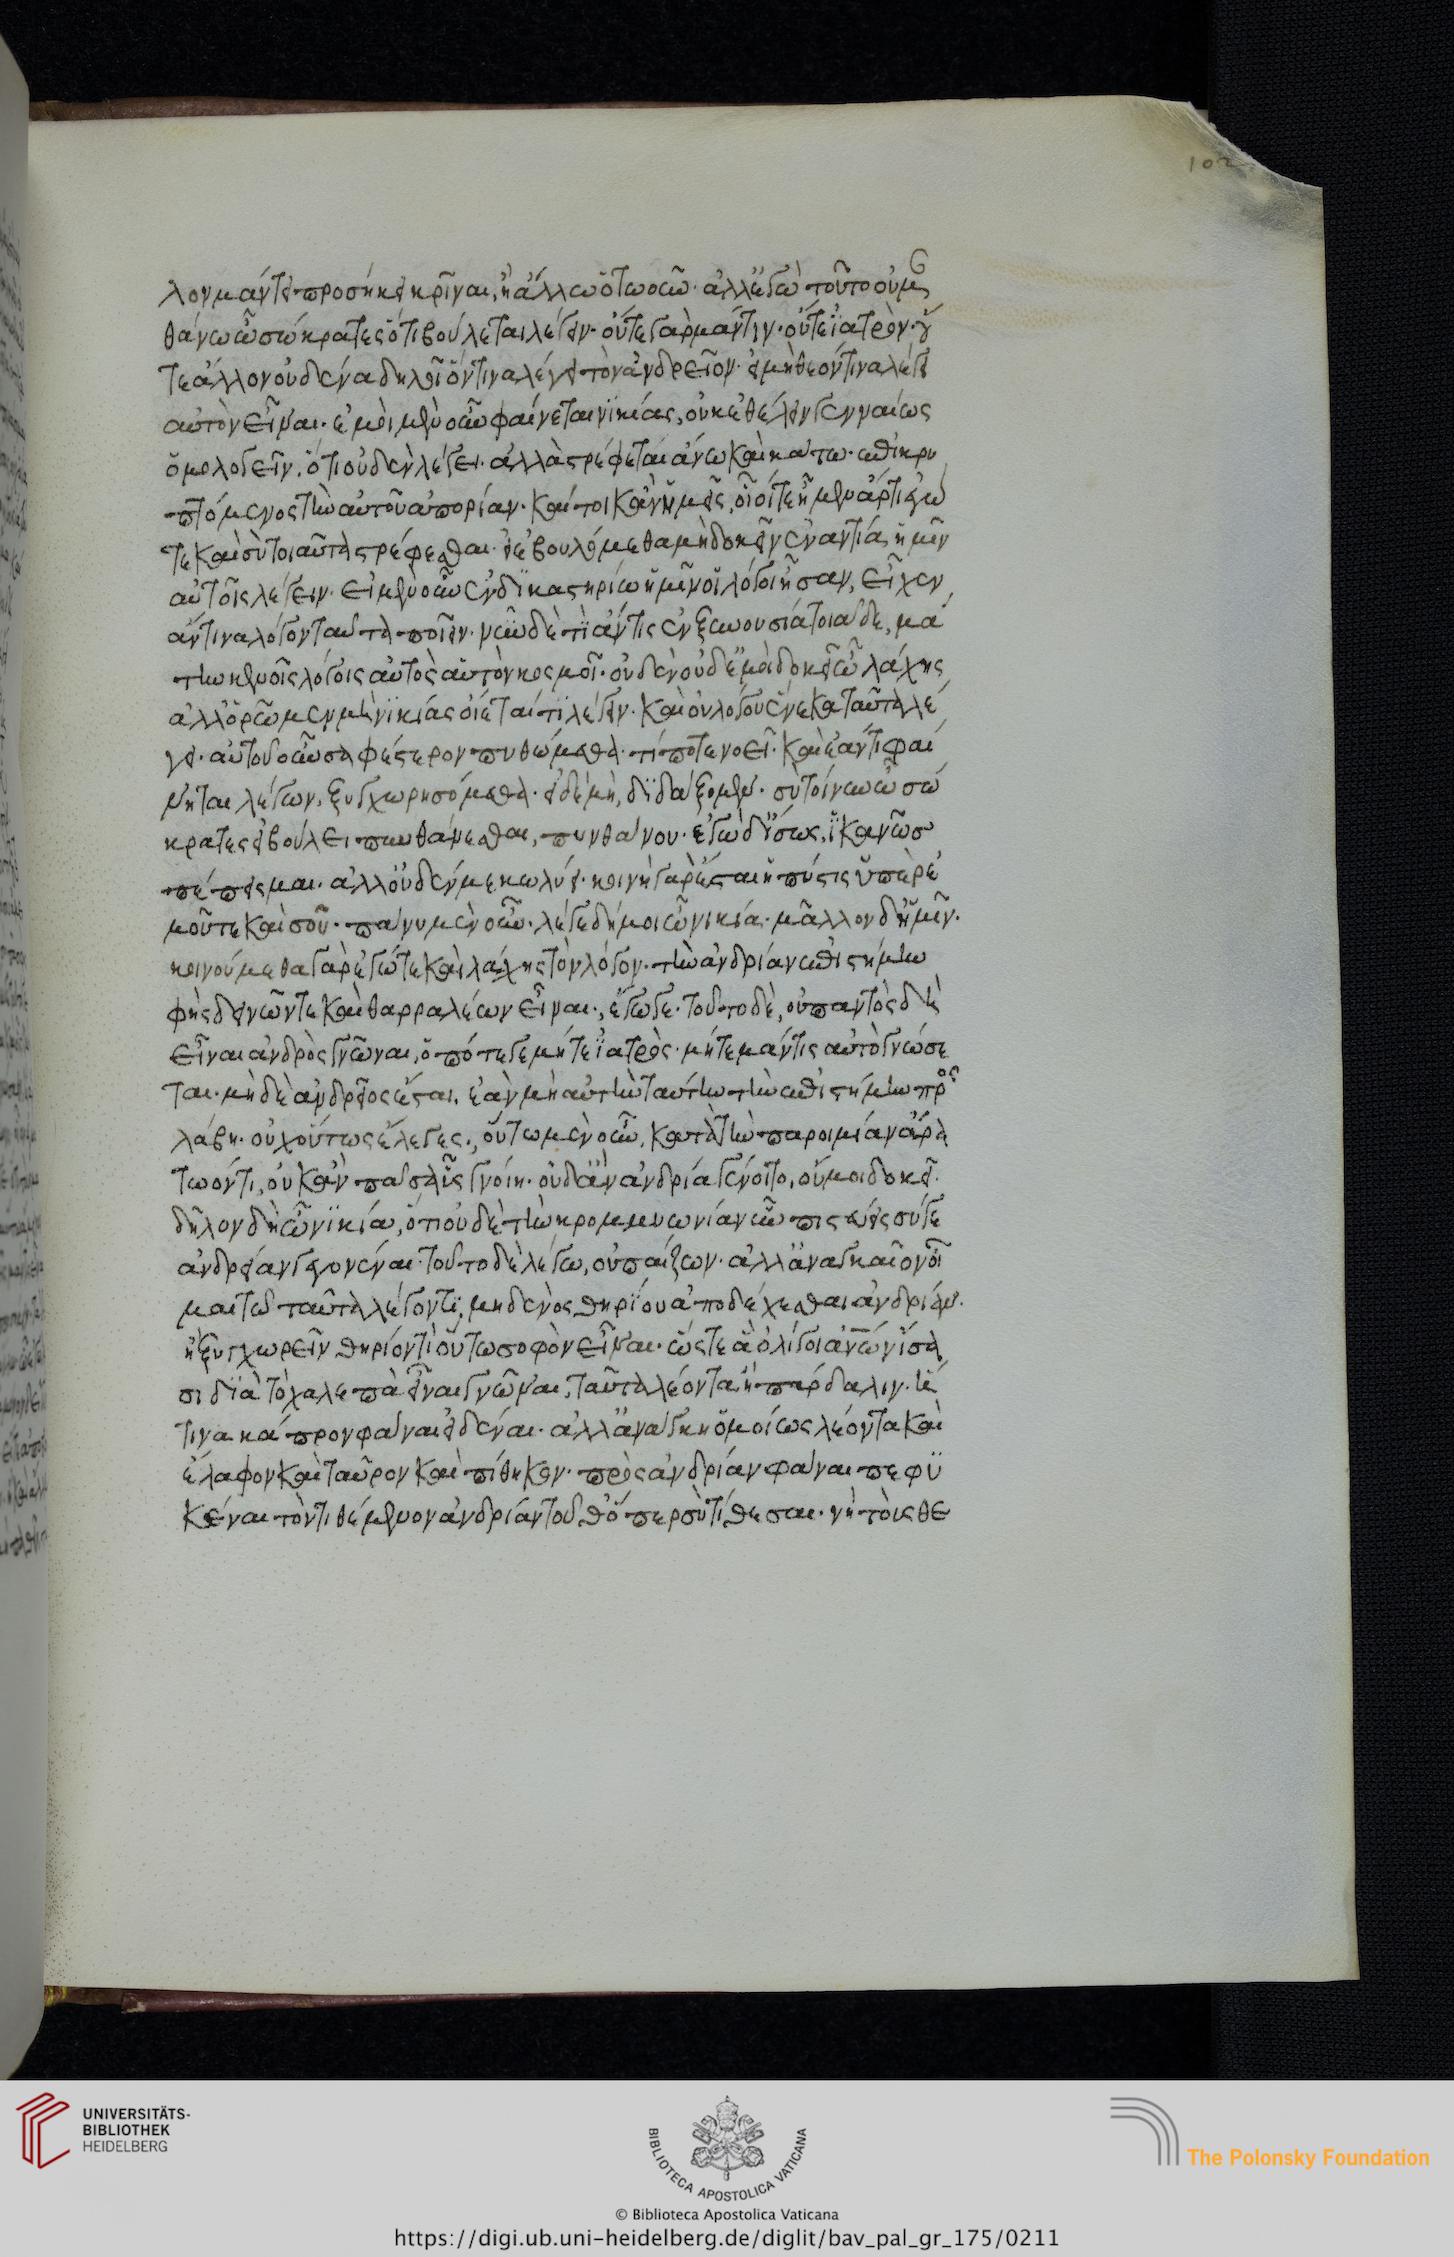 102
λον μάντει προσήκει κρῖναι, ἢ ἄλλω ὁτωοῦν· ἀλλ' ἐγὼ τοῦτο οὐ μαν
θάνω ὦ σώκρατες ὅτι βούλεται λέγειν· οὔτε γὰρ μάντιν· οὔτε ἰατρὸν· οὔ
τε ἄλλον οὐδένα δηλοῖ ὅντινα λέγει τὸν ἀνδρεῖον· εἰ μὴ θεόν τινα λέγει
αὐτὸν εἶναι· ἐμοὶ μὲν οὖν φαίνεται νικίας, οὐκ ἐθέλειν γενναίως
ὁμολογεῖν, ὅτι οὐδὲν λέγει· ἀλλὰ στρέφεται ἄνω καὶ κάτω· ἐπικρυ
πτόμενος τὴν αὑτοῦ ἀπορίαν· καίτοι κἂν ἡμεῖς, οἷοί τε ἦμεν ἄρτι ἐγώ
τε καὶ σὺ τοιαῦτα στρέφεσθαι· εἰ ἐβουλόμεθα μὴ δοκεῖν ἐναντία ἡμῖν
αὐτοῖς λέγειν· εἰ μὲν οὖν ἐν δικαστηρίω ἡμῖν οἱ λόγοι ἦσαν, εἶχεν
ἄν τινα λόγον ταῦτα ποιεῖν· νῦν δὲ τί ἄν τις ἐν ξυνουσία τοιᾶδε, μά
την κενοῖς λόγοις αὐτὸς αὑτὸν κοσμοῖ· οὐδὲν οὐδ' ἐμοὶ δοκεῖ ὦ λάχης
ἀλλ' ὁρῶμεν μὴ νικίας οἴεταί τι λέγειν· καὶ οὐ λόγου ἕνεκα ταῦτα λέ
γει· αὐτοῦ οὖν σαφέστερον πυθώμεθα· τί ποτε νοεῖ· καὶ ἐάν τι φαί
νηται λέγων, ξυγχωρησόμεθα· εἰ δὲ μὴ, διδάξομεν· σὺ τοίνυν ὦ σώ
κρατες εἰ βούλει πυνθάνεσθαι, πυνθάνου· ἐγὼ δ' ἴσως, ἱκανῶς
πέπεισμαι· ἀλλ' οὐδέν με κωλύει· κοινὴ γὰρ ἔσται ἡ πύστις ὑπὲρ ἐ
μοῦ τε καὶ σοῦ· πάνυ μὲν οὖν· λέγε δή μοι ὦ νικία· μᾶλλον δ' ἡμῖν·
κοινούμεθα γὰρ ἐγώ τε καὶ λάχης τὸν λόγον· τὴν ἀνδρίαν ἐπιστήμην
φὴς δεινῶν τε καὶ θαρραλέων εἶναι·, ἔγωγε· τοῦτο δὲ, οὐ παντὸς δὴ
εἶναι ἀνδρὸς γνῶναι, ὁπότε γε μήτε ἰατρὸς· μήτε μάντις αὐτὸ γνώσε
ται· μηδὲ ἀνδρεῖος ἔσται, ἐὰν μὴ αὐτὴν ταύτην τὴν ἐπιστήμην προσ
λάβη· οὐχ οὕτως ἔλεγες·, οὕτω μὲν οὖν, κατὰ τὴν παροιμίαν ἄρα
τῶ ὄντι, οὐκ ἂν πᾶσα ὗς γνοίη· οὐδ' ἂν ἀνδρία γένοιτο, οὔ μοι δοκεῖ·
δῆλον δὴ ὦ νικία, ὅτι οὐδὲ τὴν κρομμυωνίαν ὗν πιστεύεις σύ γε
ἀνδρείαν γεγονέναι· τοῦτο δὲ λέγω, οὐ παίζων· ἀλλ' ἀναγκαῖον οἶ
μαι τῶ ταῦτα λέγοντι, μηδενὸς θηρίου ἀποδέχεσθαι ἀνδρίαν·
ἢ ξυγχωρεῖν θηρίον τὶ οὕτω σοφὸν εἶναι· ὥστε ἃ ὀλίγοι ἀνθρώπων ἴσα
σι διὰ τὸ χαλεπὰ εἶναι γνῶναι, ταῦτα λέοντα ἢ πάρδαλιν· ἤ
τινα κάπρον φάναι εἰδέναι· ἀλλ' ἀνάγκη ὁμοίως λέοντα καὶ
ἔλαφον καὶ ταῦρον καὶ πίθηκον· πρὸς ἀνδρίαν φάναι πεφυ
κέναι τὸν τιθέμενον ἀνδρίαν τοῦθ' ὅπερ σὺ τίθεσαι· νὴ τοὺς θε
UNIVERSITÄTS-
BIBLIOTHEK
HEIDELBERG
BIBLIOTECA APOSTOLICA VATICANA
© Biblioteca Apostolica Vaticana
The Polonsky Foundation
https://digi.ub.uni-heidelberg.de/diglit/bav_pal_gr_175/0211